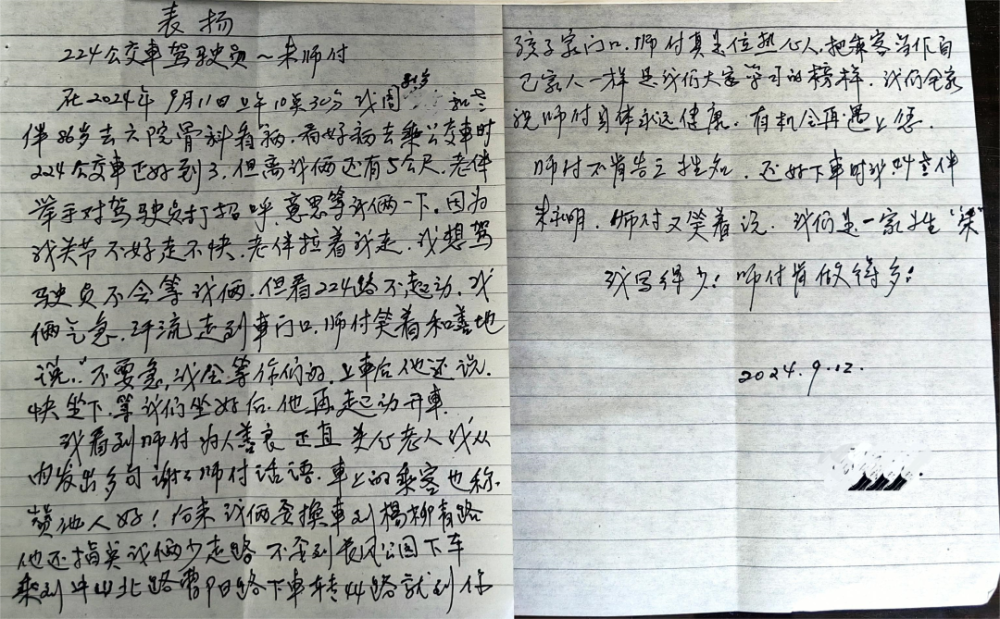 表扬
224公交車驾驶员~朱师付
在2024年9月11日上午10点30分我周 和老
伴86岁去六院骨科看病.看好病去乘公交車时
224公交車正好到了.但离我俩还有5公尺.老伴
举手对驾驶员打招呼.意思等我俩一下.因为
我关节不好走不快.老伴拉着我走.我想驾
驶员不会等我俩.但看224路不起动.我
俩气急.汗流走到車门口.师付笑着和善地
说:"不要急,我会等你们的.上車后他还说.
快坐下.等我们坐好后.他再起动开車.
我看到师付为人善良正直关心老人我从
内发出多句谢谢师付话语.車上的乘客也称
赞他人好!后来我俩要换車到楊柳青路
他还指点我俩少走路 不要到长风公园下车
乘到中山北路曹杨路下車转44路就到你
孩子家门口.师付真是位热心人.把乘客当作自
己家人一样是我们大家学习的榜样.我们全家
祝师付身体永远健康.有机会再遇上您.
师付不肯告之姓名.还好下車时我叫老伴
朱 明.师付又笑着说.我们是一家姓"朱"
我写得少!师付肯做得多!
2024.9.12.